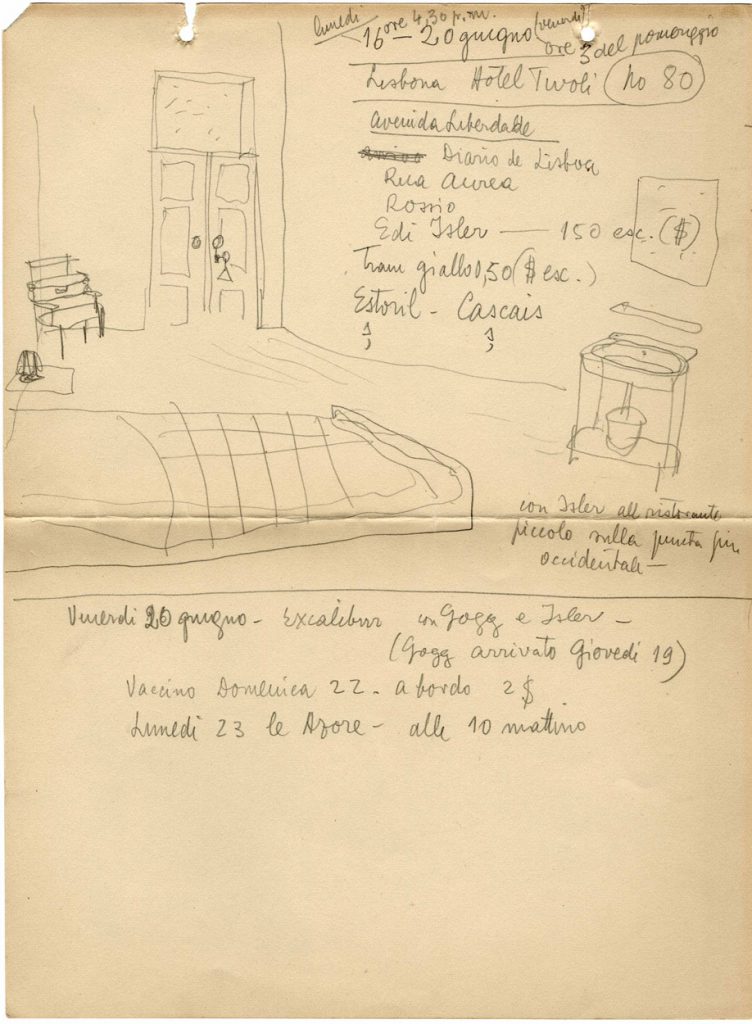 lunedi
16 ore 4,30 p.m. — 20 giugno (venerdi) ore 3 del pomeriggio
Lisbona Hotel Tivoli No 80
Avenida Liberdade
Diario de Lisboa
Rua Aurea
Rossio
Edi Isler — 150 esc. ($)
Tram giallo 0,50 ($ esc.)
Estoril - Cascais
con Isler al ristorante
piccolo sulla punta più
occidentale —
Venerdi 20 giugno - Excalibur con Gogg e Isler —
(Gogg arrivato Giovedi 19)
Vaccino Domenica 22 - a bordo 2 $
Lunedi 23 le Azore - alle 10 mattino